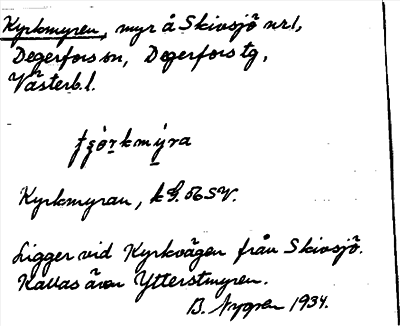 Kyrkmyren, myr å Skivsjö nr1,
Degerfors sn, Degerfors tg,
Västerb. l.
Kyrkmyran, k 56 SV.
Ligger vid Kyrkvägen från Skivsjö.
Kallas även Ytterstmyren.
B. Nygren 1934.